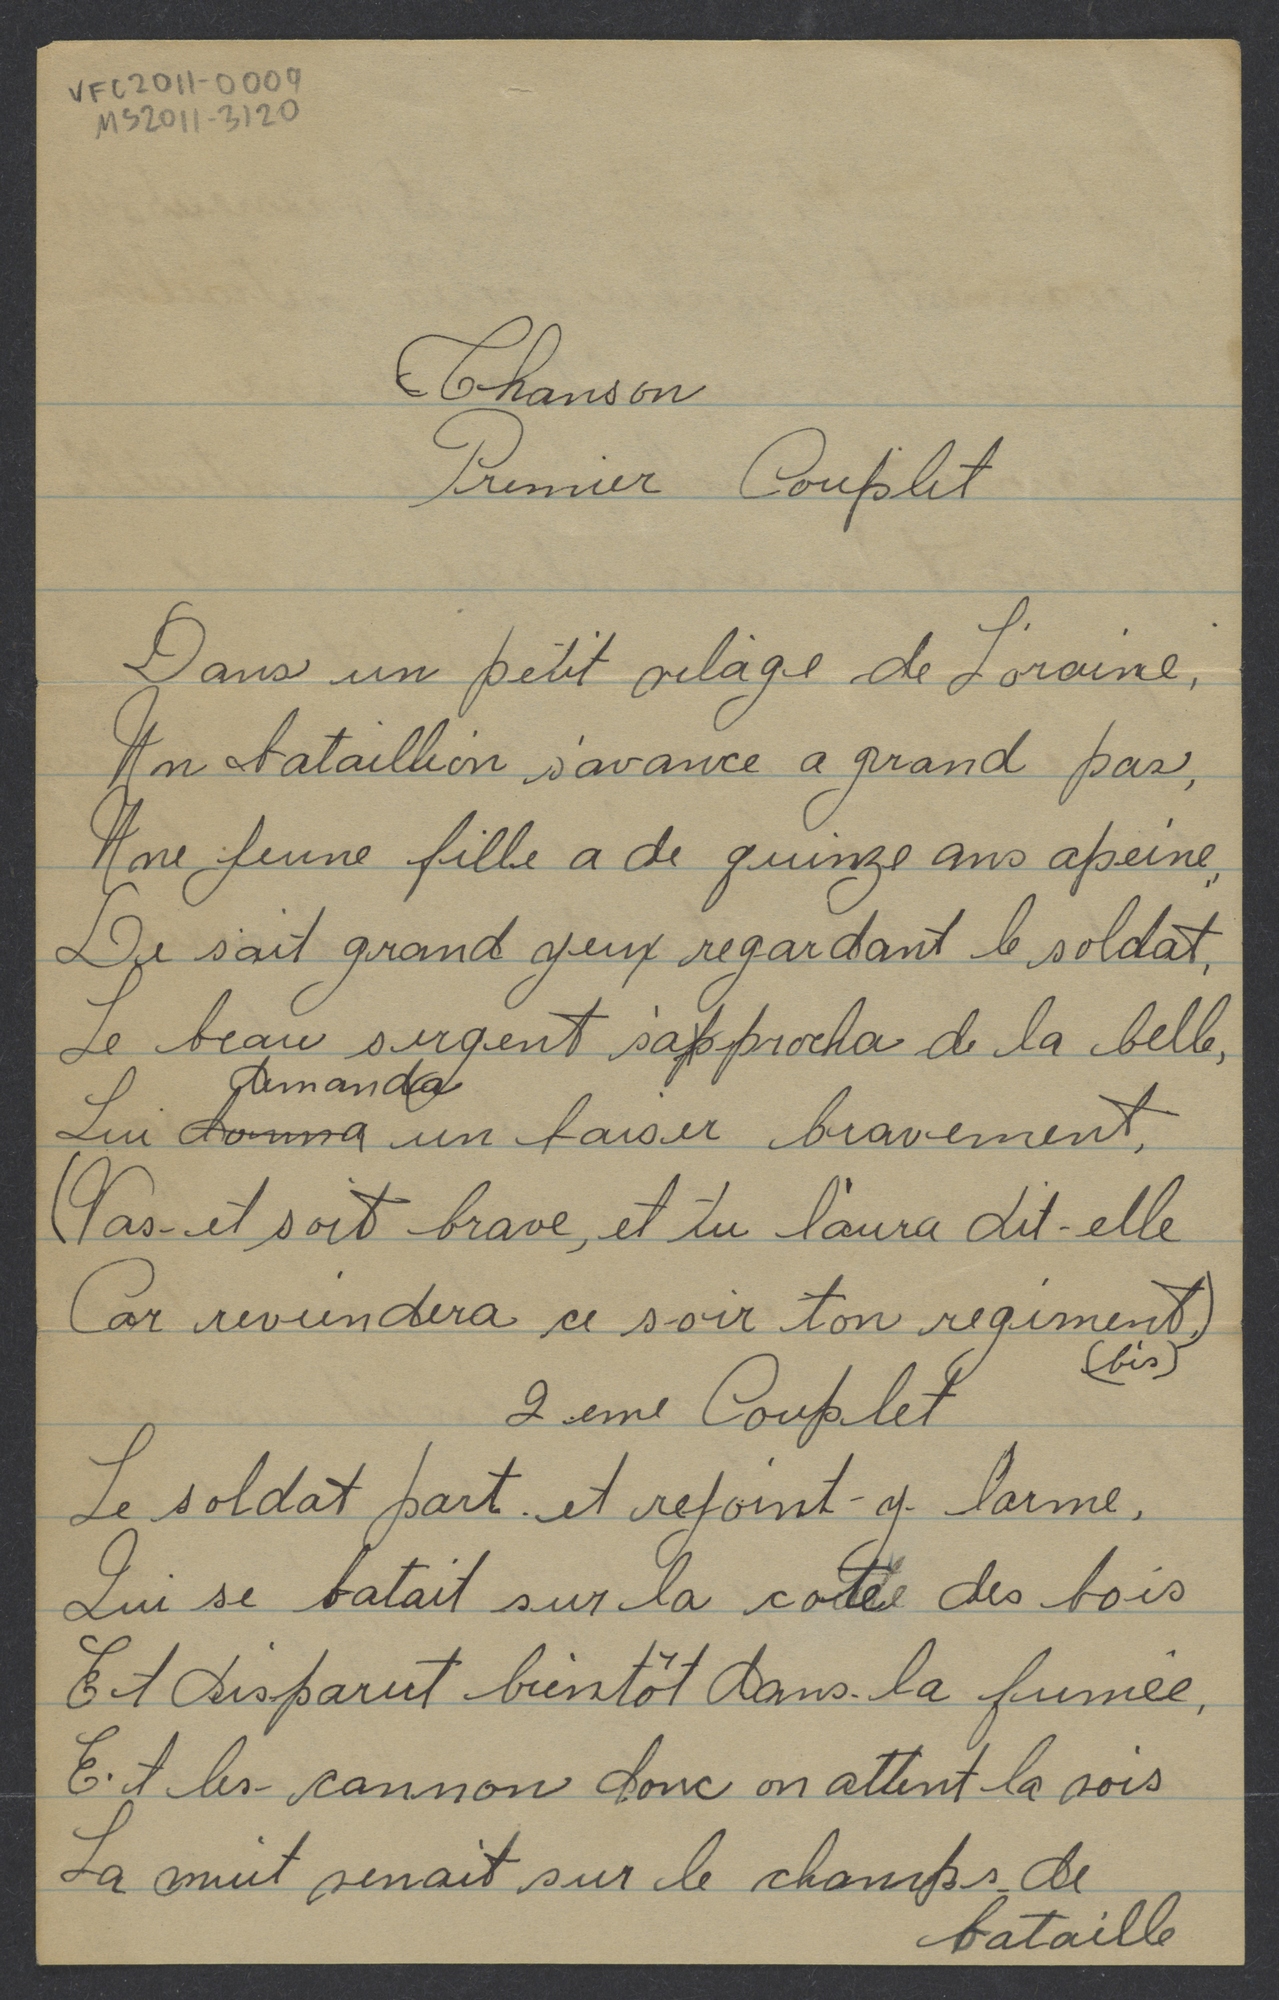 VFC2011-0009
MS2011-3120
Chanson
Premier Couplet
Dans un petit vilage de Loraine,
Un bataillion s'avance a grand pas,
Une jeune fille a de quinze ans apeine,
De sait grand yeux regardant le soldat,
Le beau sergent s'approcha de la belle,
demanda
Lui donna un baiser bravement,
(Vas-et soit brave, et tu l'aura dit-elle
Car reveindera ce soir ton regiment,)
(bis)
2 eme Couplet
Le soldat part. et rejoint-y l'arme,
Qui se batait sur la cotee des bois
Et disparut bientôt dans-la fumée,
Et les-cannon donc on attent la vois
La nuit venait sur le champs-de
bataille